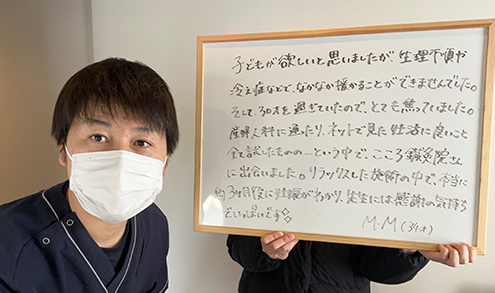 子どもが欲しいと思いましたが、生理不順や
冷え症などで、なかなか授かることができませんでした。
そして、30才を過ぎていたので、とても焦っていました。
産婦人科に通ったり、ネットで見た妊活に良いこと
全て試したものの…という中で、こころ鍼灸院さん
に出会いました。リラックスした施術の中で、本当に
約3ヶ月後に妊娠がわかり、先生には感謝の気持ち
でいっぱいです◇
M.M(34才)